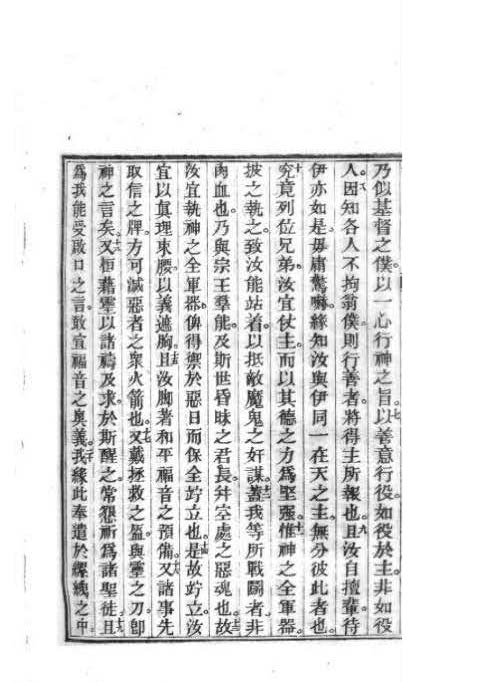 乃似基督之僕。以一心行神之旨。七以善意行役。如役於主。非如役
人。八因知各人不拘翁僕。則行善者將得主所報也。九且汝自擅輩待
伊亦如是。毋庸驚嚇。緣知汝與伊同一在天之主。無分彼此者也。
十究竟列位兄弟。汝宜仗主。而以其德之力爲堅強。十一惟神之全軍器。
披之執之。致汝能站着。以抵敵魔鬼之奸謀。十二蓋我等所戰鬭者非
肉血也。乃與宗王羣能。及斯世昏昧之君長。舛空處之惡魂也。十三故
汝宜執神之全軍器。俾得禦於惡日而保全竚立也。十四是故竚立。汝
宜以眞理束腰。以義遮胸。十五且汝脚著和平福音之預備。十六又諸事先
取信之牌。方可滅惡者之衆火箭也。十七又戴拯救之盔。與靈之刀。卽
神之言矣。十八又恒藉靈以諸禱及求。於斯醒之。常怨祈爲諸聖徒。十九且
爲我能受啟口之言。敢宜福音之奥義。二十我緣此奉遣於縲絏之中。